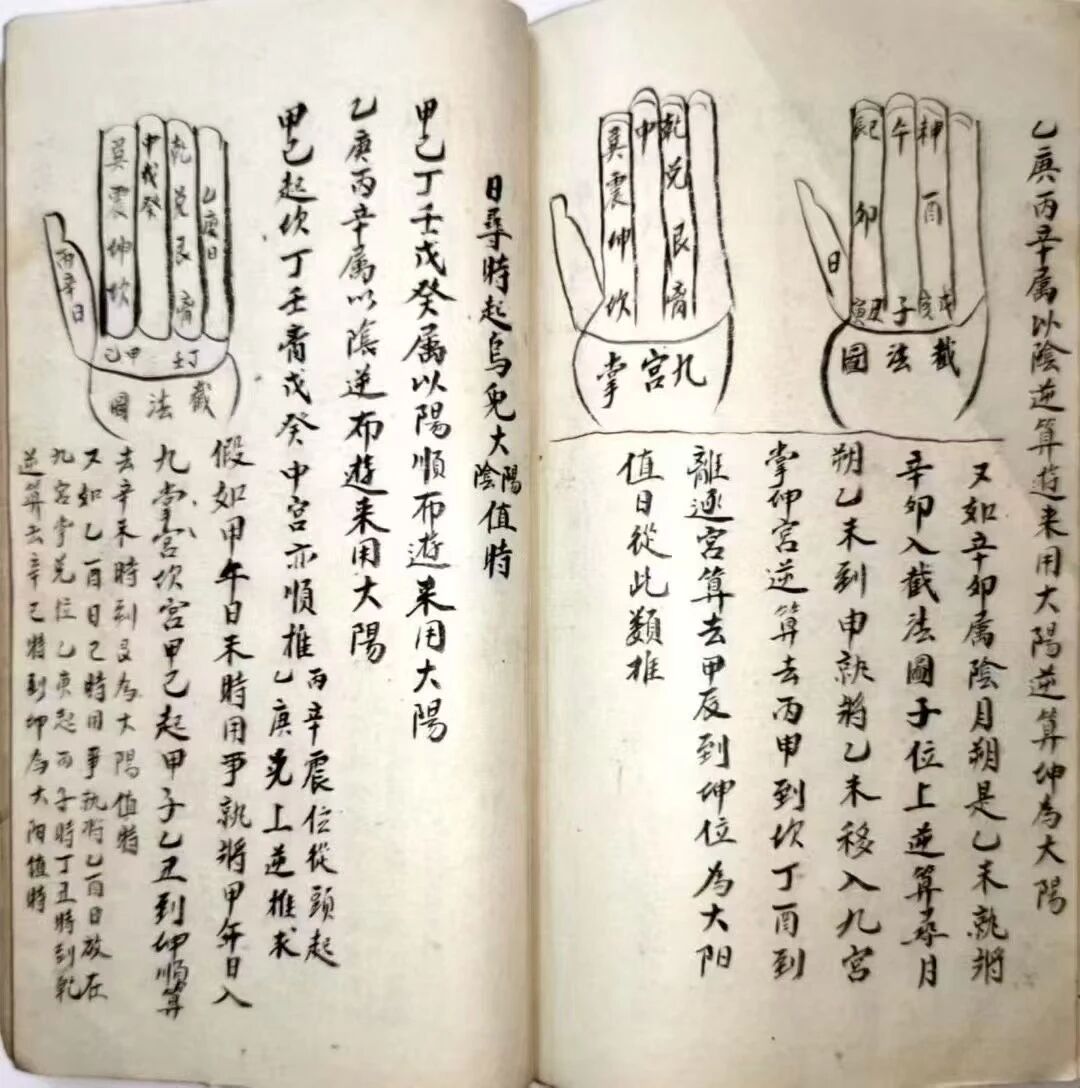 乙庚丙辛属以陰逆算遊来用大陽逆算坤為大陽
又如辛卯属陰月朔是乙未就將
辛卯入截法圖子位上逆算尋月
朔乙未到申就將乙未移入九宮
掌坤宮逆算去丙申到坎丁酉到
離逐宮算去甲辰到坤位為大阳
值日從此類推
辰巳
卯
寅丑
午
子
申
酉
戌
日
截法圖
中
巽震坤坎
乾兑艮离
九宮掌
日尋時起烏兔大陰陽值時
甲己丁壬戊癸属以陽順布遊来用大陽
乙庚丙辛属以陰逆布遊来用大陽
甲己起坎丁壬离戊癸中宮亦順推
丙辛震位從頭起
乙庚兑上逆推求
假如甲午日未時用事就將甲午日入
九掌宮坎宮甲己起甲子乙丑到坤順算
去辛未時到艮為大陽值時
又如乙酉日巳時用事就將乙酉日放在
九宮掌兑位乙庚起丙子時丁丑時到乾
逆算去辛巳時到坤為大阳值時
乙庚日
乾兑艮离
中戊癸
巽震坤坎
丙辛日
甲己
丁壬
截法圖